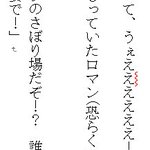 て、うぇええええええー
っていたロマン(恐らく
のさぼり場だぞ!?　誰
で!」